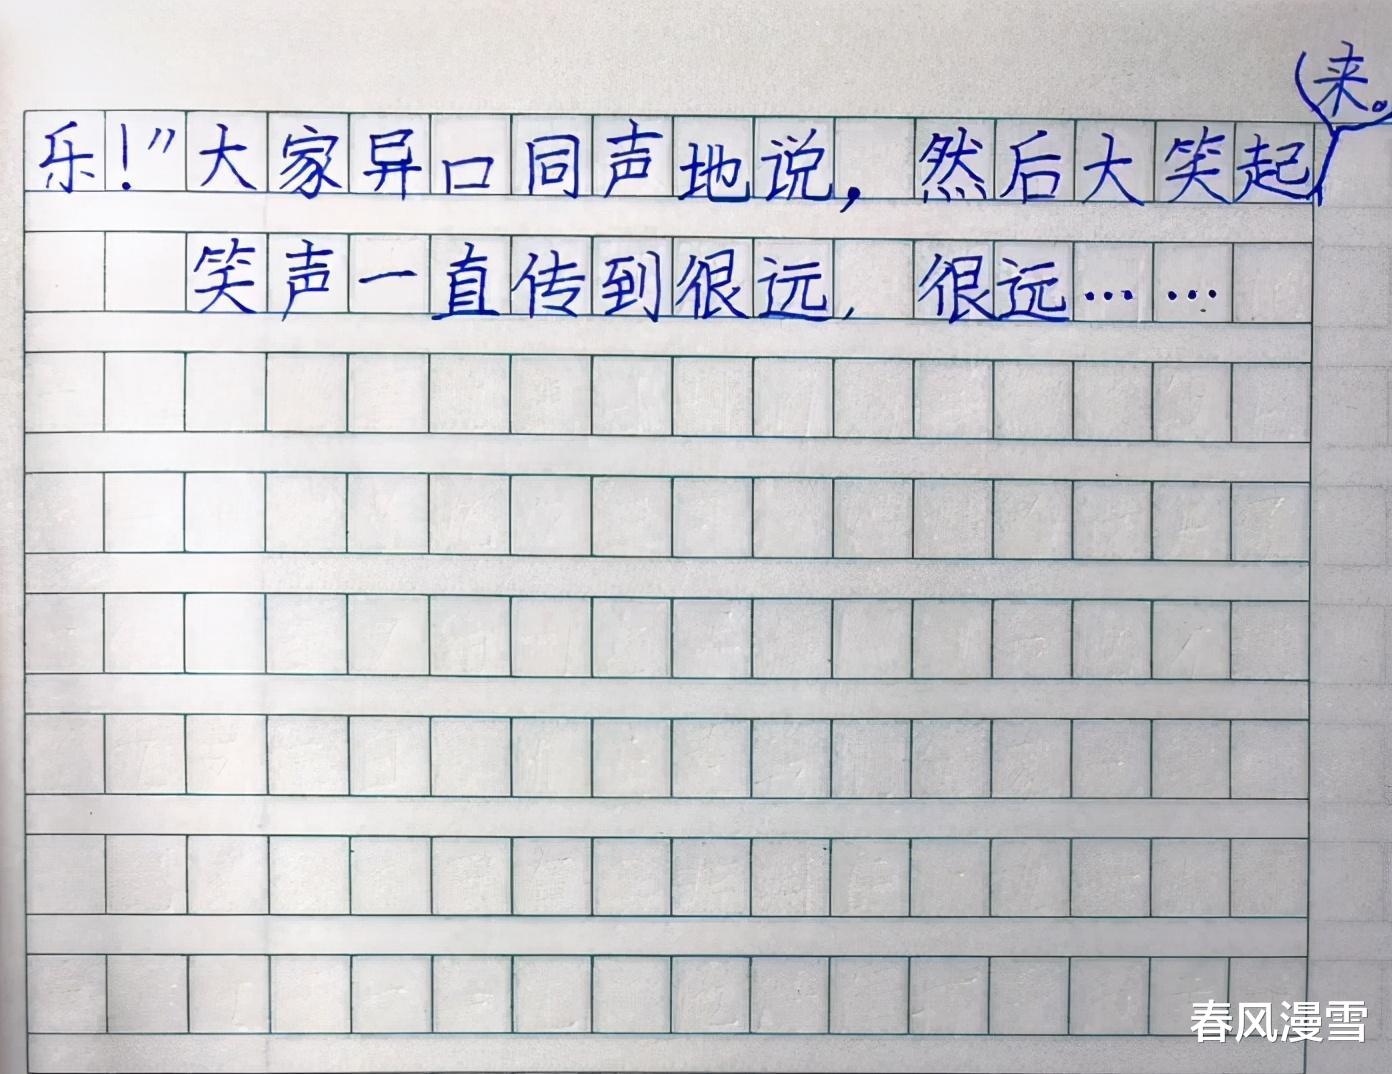 乐！”大家异口同声地说，然后大笑起来。
笑声一直传到很远，很远……
春风漫雪